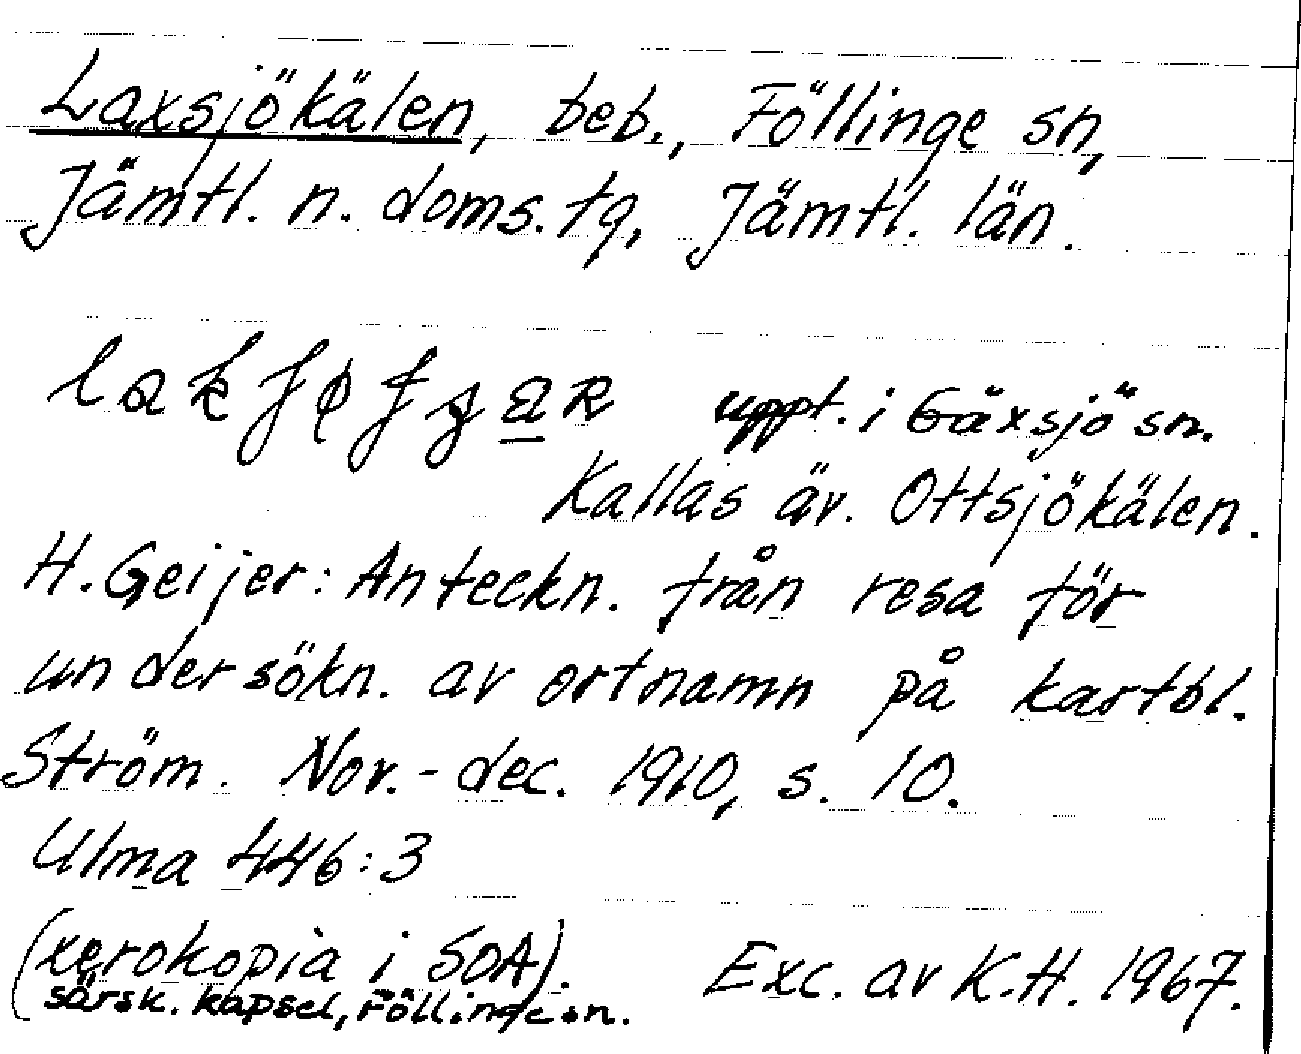 Laxsjökälen, beb., Föllinge sn,
Jämtl. n. doms. tg, Jämtl. län.
uppt. i Gäxsjö sn.
Kallas äv. Ottsjökälen.
H. Geijer: Anteckn. från resa för
undersökn. av ortnamn på kartbl.
Ström. Nov.-dec. 1910, s. 10.
Ulma 446:3
(xerokopia i SOA).
särsk. kapsel, Föllinge sn.
Exc. av K.H. 1967.